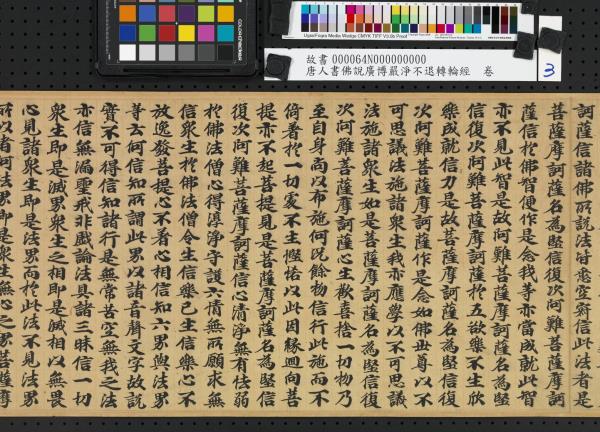 Ugra/Fogra Media Wedge CMYK TIFF V3.0b Proof
故書 000064N000000000
唐人書佛說廣博嚴淨不退轉輪經 卷
3
訶薩信諸佛所說法皆悉空寂信此法者是
菩薩摩訶薩名為堅信復次阿難菩薩摩訶
薩信於佛智便作是念我等亦當成就此智
亦不見此智是故阿難菩薩摩訶薩名為堅
信復次阿難菩薩摩訶薩於五欲樂不生欣
樂成就信力是故菩薩摩訶薩名為堅信復
次阿難菩薩摩訶薩作是念如佛世尊以不
可思議法施諸眾生我亦應學以不可思議
法施諸眾生如是菩薩摩訶薩名為堅信復
次阿難菩薩摩訶薩心生歡喜捨一切物乃
至自身尚以布施何況餘物信行此施而不
倚著於一切處不生慳悋以此因緣迴向菩
提亦不起菩提見是菩薩摩訶薩名為堅信
復次阿難菩薩摩訶薩信心清淨無有怯弱
於佛法僧心得淳淨守護六情無所願求無
信眾生於佛法僧令生信樂已生信樂心不
放逸發菩提心不著心相信知六界與法界
等云何信知所謂此界以諸音聲文字故說
實不可得信知諸行是無常苦空無我之法
亦信無漏聖戒非戲論法具諸三昧信一切
眾生即是滅界眾生之相即是滅相以無畏
心見諸眾生即是法界而於此法不見法界
所以者何法界即是眾生無心之界菩薩摩